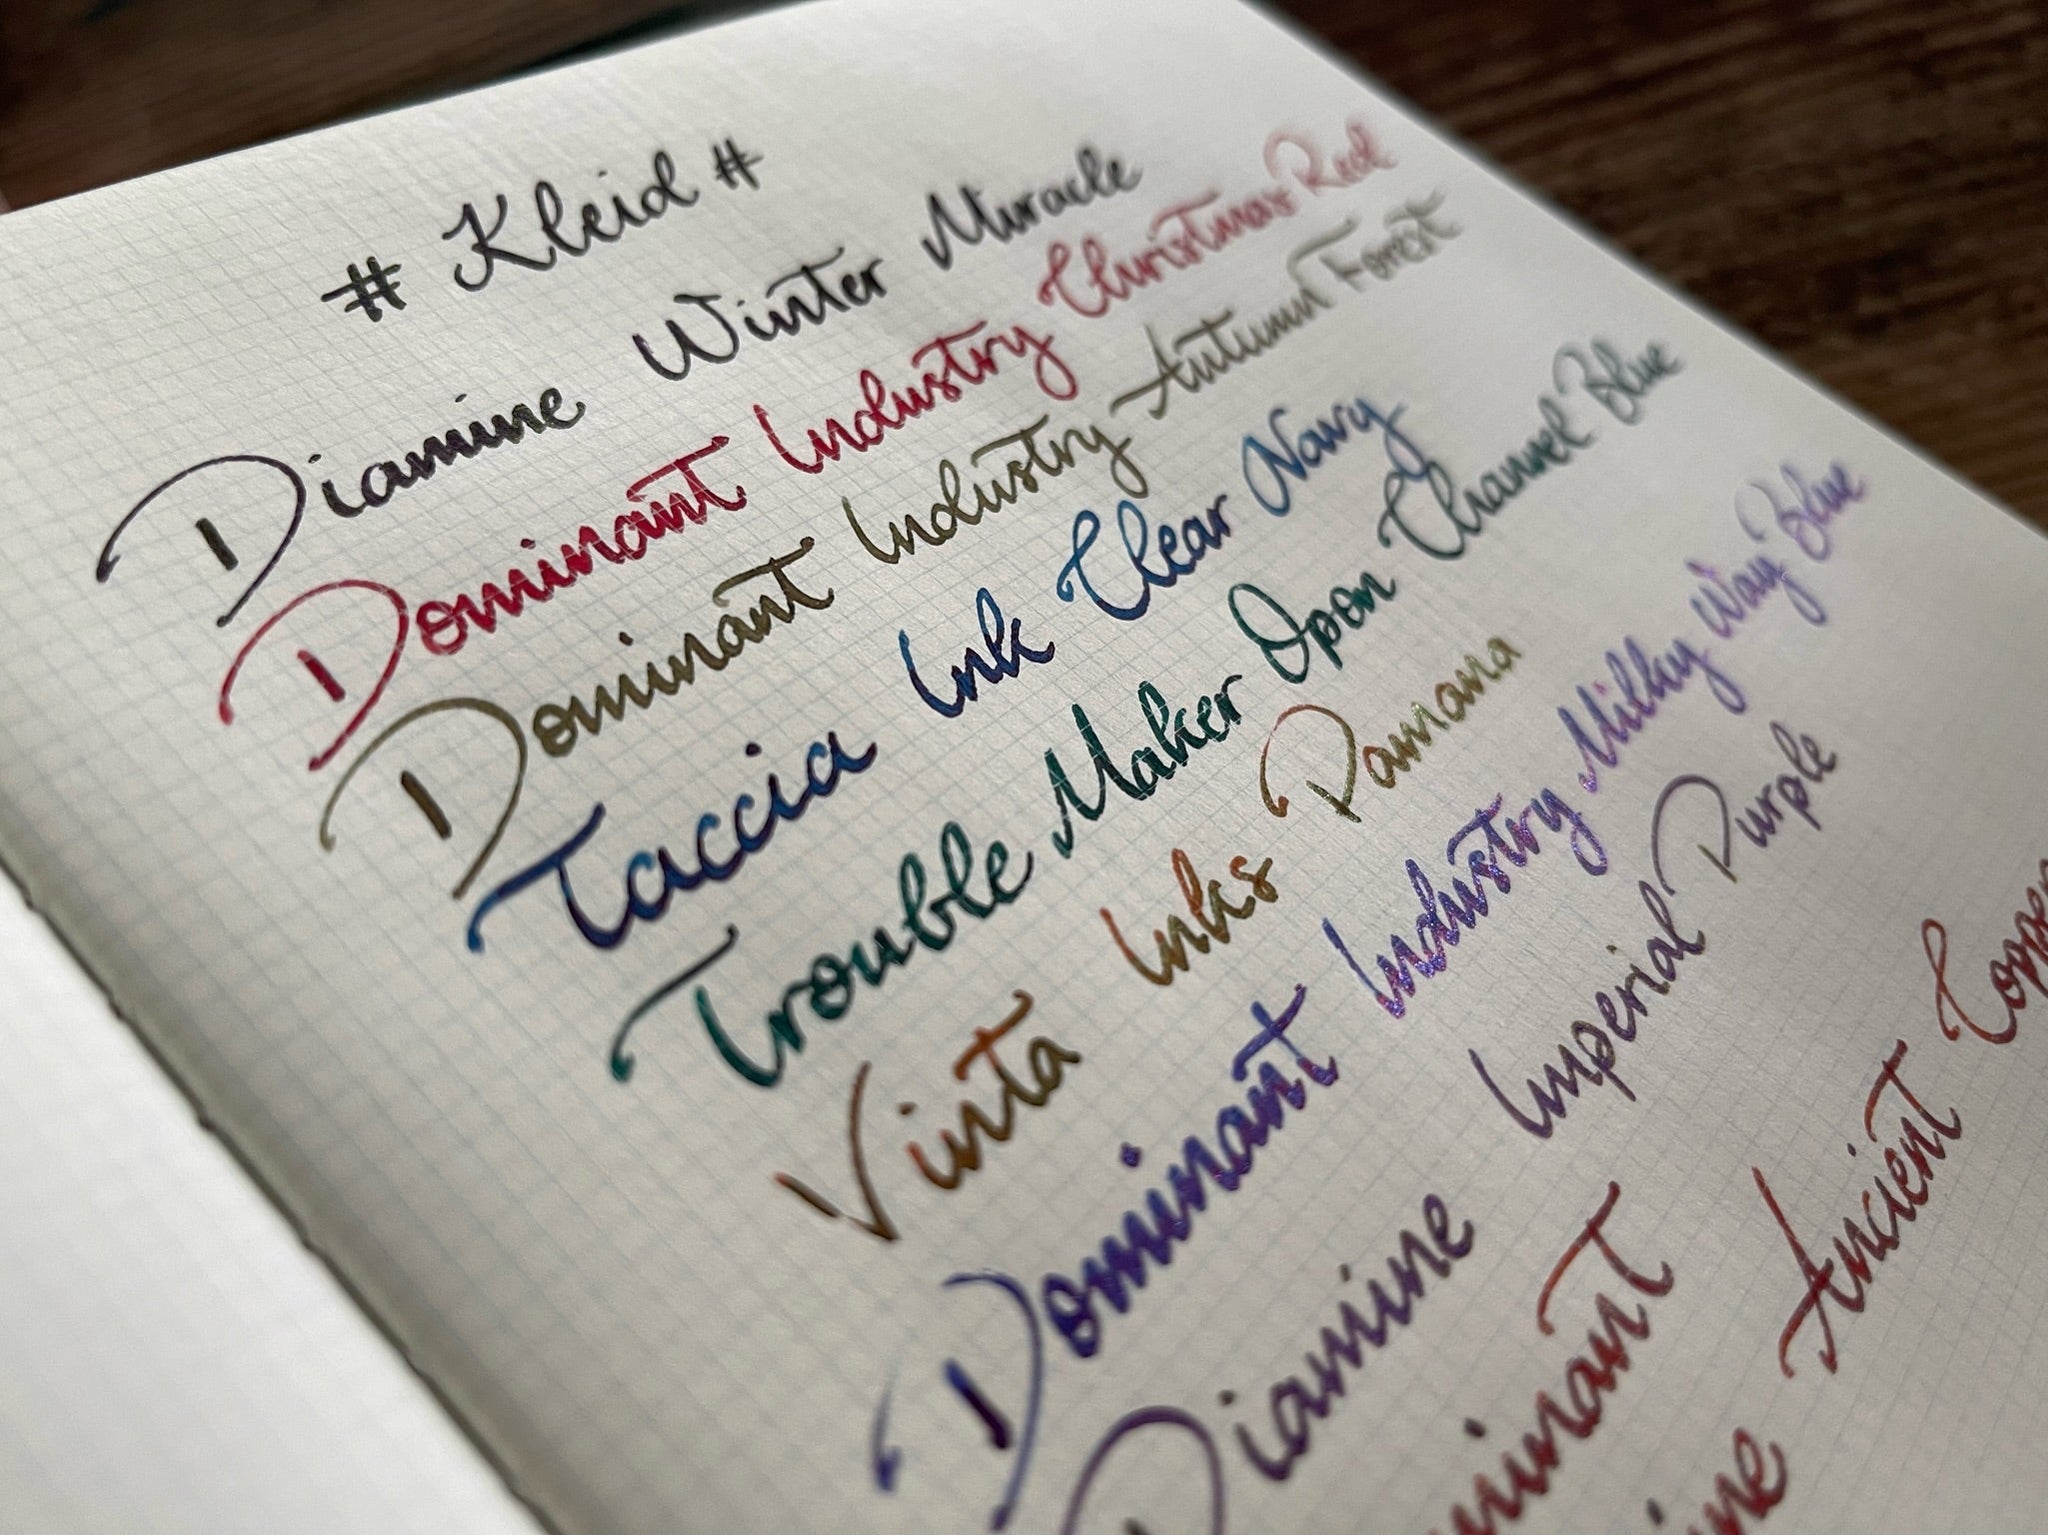 # Kleid #
Diamine Winter Miracle
Dominant Industry Christmas Red
Dominant Industry Autumn Forrest
Taccia Ink Clear Navy
Trouble Maker Opon Channel Blue
Vinta Inks Pamana
Dominant Industry Milky Way Blue
Diamine Imperial Purple
Ancient